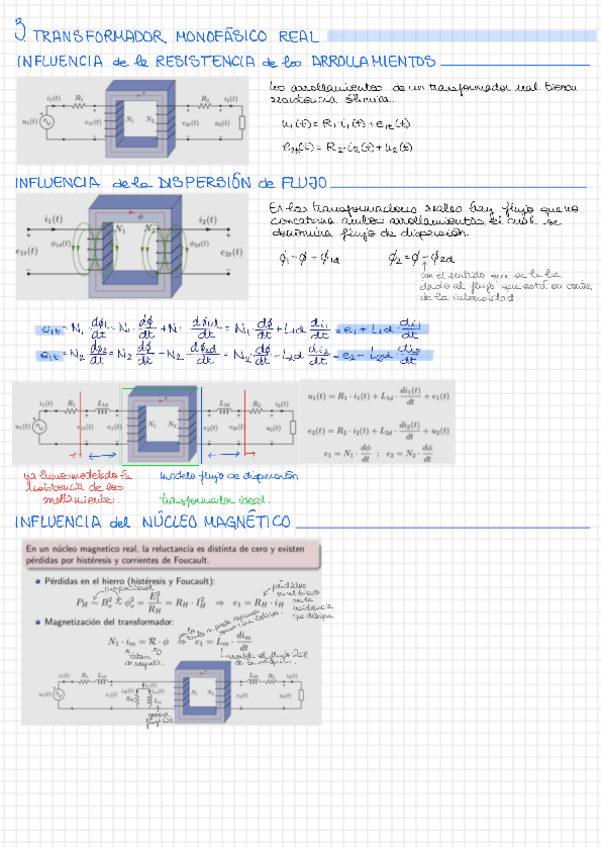 3. TRANSFORMADOR MONOFÁSICO REAL
INFLUENCIA de la RESISTENCIA de los ARROLLAMIENTOS
i₁(t) R₁ R₂ i₂(t)
u₁(t) e₁(t) N₁ N₂ e₂(t) u₂(t)
los arrollamientos de un transformador real tienen
resistencia óhmica.
u₁(t) = R₁·i₁(t) + e₁t(t)
e₂t(t) = R₂·i₂(t) + u₂(t)
INFLUENCIA de la DISPERSIÓN de FLUJO
En los transformadores reales hay flujo que no
concatena ambos arrollamientos el cual se
denomina flujo de dispersión.
i₁(t) ϕ i₂(t)
N₁ N₂
e₁t(t) ϕ₁d(t) ϕ₂d(t) e₂t(t)
ϕ₁ - ϕ - ϕ₁d ϕ₂ = ϕ - ϕ₂d
con el sentido que se le ha
dado al flujo que está en contra
de la intensidad
e₁t = N₁ · dϕ₁/dt = N₁ · dϕ/dt + N₁ · dϕ₁d/dt = N₁ · dϕ/dt + L₁d di₁/dt = e₁ + L₁d · di₁/dt
e₂t = N₂ dϕ₂/dt = N₂ dϕ/dt - N₂ · dϕ₂d/dt = N₂ · dϕ/dt - L₂d di₂/dt = e₂ - L₂d · di₂/dt
i₁(t) R₁ L₁d L₂d R₂ i₂(t)
u₁(t) e₁t(t) e₁(t) N₁ N₂ e₂(t) e₂t(t) u₂(t)
u₁(t) = R₁ · i₁(t) + L₁d · di₁(t)/dt + e₁(t)
e₂(t) = R₂ · i₂(t) + L₂d · di₂(t)/dt + u₂(t)
e₁ = N₁ · dϕ/dt ; e₂ = N₂ · dϕ/dt
ya hemos modelado la
resistencia de los
modelo flujo de dispersión
transformador ideal.
INFLUENCIA del NÚCLEO MAGNÉTICO
En un núcleo magnetico real, la reluctancia es distinta de cero y existen
pérdidas por histéresis y corrientes de Foucault.
• Pérdidas en el hierro (histéresis y Foucault):
proporcional
P_H ~ B₀² ~ ϕ₀² = E₁²/R_H = R_H · I_H² ⇒ e₁ = R_H · i_H
pérdidas
en el hierro
en la
resistencia
• Magnetización del transformador:
N₁ · i_m = R · ϕ ⇒ e₁ = L_m · di_m/dt
i₁(t) R₁ L₁d L₂d R₂ i₂(t)
u₁(t) e₁(t) R_H L_m N₁ N₂ e₂(t) u₂(t)